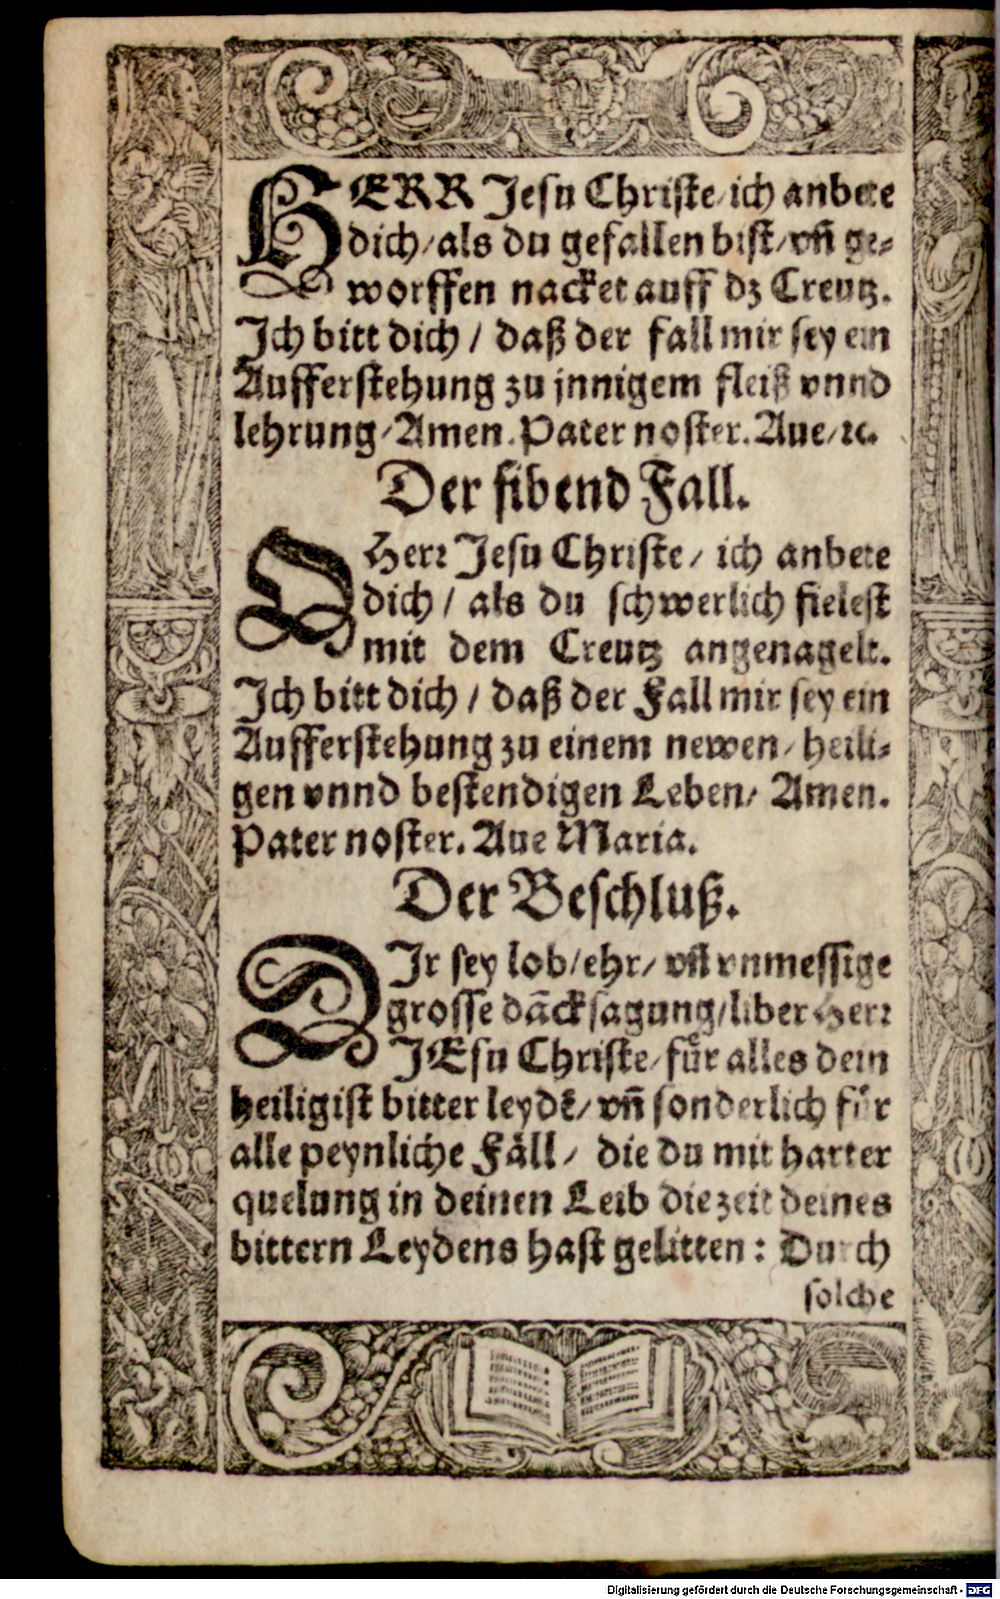 HERR Jesu Christe/ich anbete
dich/als du gefallen bist/vn̄ ge-
worffen nacket auff dz Creutz.
Ich bitt dich / daß der fall mir sey ein
Aufferstehung zu jnnigem fleiß vnnd
lehrung/Amen. Pater noster. Aue/ꝛc.
Der sibend Fall.
O Herr Jesu Christe/ ich anbete
dich / als du schwerlich fielest
mit dem Creutz angenagelt.
Ich bitt dich / daß der Fall mir sey ein
Aufferstehung zu einem newen/ heili-
gen vnnd bestendigen Leben/ Amen.
Pater noster. Aue Maria.
Der Beschluß.
DIr sey lob/ehr/ vn̄ vnmessige
grosse dācksagung/liber Herr
JEsu Christe/fuͤr alles dein
heiligist bitter leydē/ vn̄ sonderlich fuͤr
alle peynliche Faͤll/ die du mit harter
quelung in deinen Leib die zeit deines
bittern Leydens hast gelitten: Durch
solche
Digitalisierung gefördert durch die Deutsche Forschungsgemeinschaft - DFG